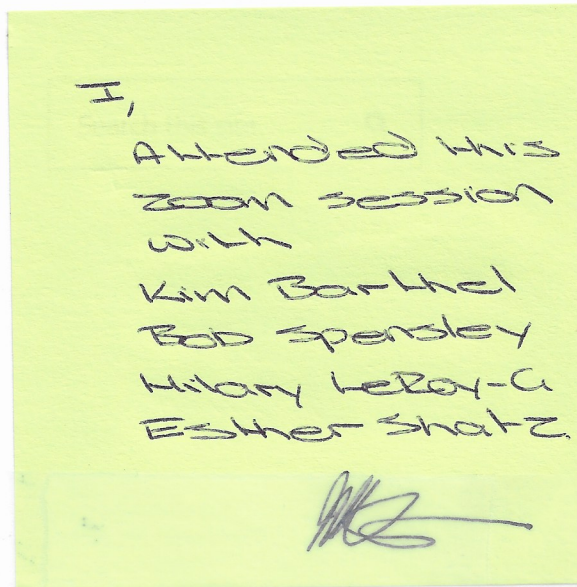 I,
Attended this
zoom session
with
Kim Barthel
Bob Spensley
Hilary LeRoy-G
Esther Shatz